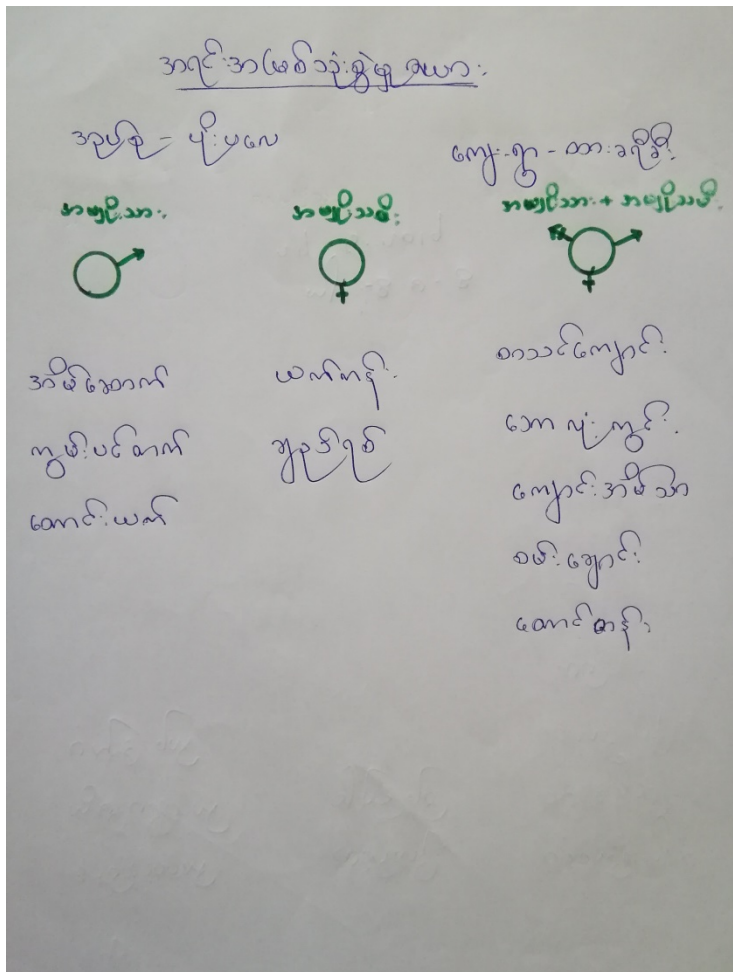 အရင်းအမြစ်သုံးစွဲမှု ဇယား
အုပ်စု - ပျိုးပလေ
ကျေးရွာ - ထားခရိခီး
အမျိုးသား
အမျိုးသမီး
အမျိုးသား + အမျိုးသမီး
အိမ်ဆောက်
ကွမ်းပင်တက်
တောင်းယက်
ယက်ကန်း
ချည်ရစ်
စာသင်ကျောင်း
ဘောလုံးကွင်း
ကျောင်းအိမ်သာ
စမ်းချောင်း
တောင်တန်း